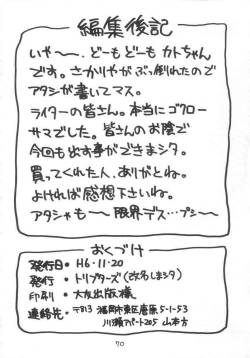 編集後記
いや〜〜。どーもどーもカトちゃん
です。さかりやがぶっ倒れたので
アタシが書いてマス。
ライターの皆さん。本当にゴクロー
サマでした。皆さんのお陰で
今回も出す事ができまシタ。
買ってくれた人、ありがとね。
よければ感想下さいね。
アタシャも〜〜限界デス…プシ〜
おくづけ
発行日・H6・11・20
発行・トリプターズ(改名しまシタ)
印刷・大友出版様
連絡先・〒813 福岡市東区唐原5-1-53
川瀬アパート205 山本方
70